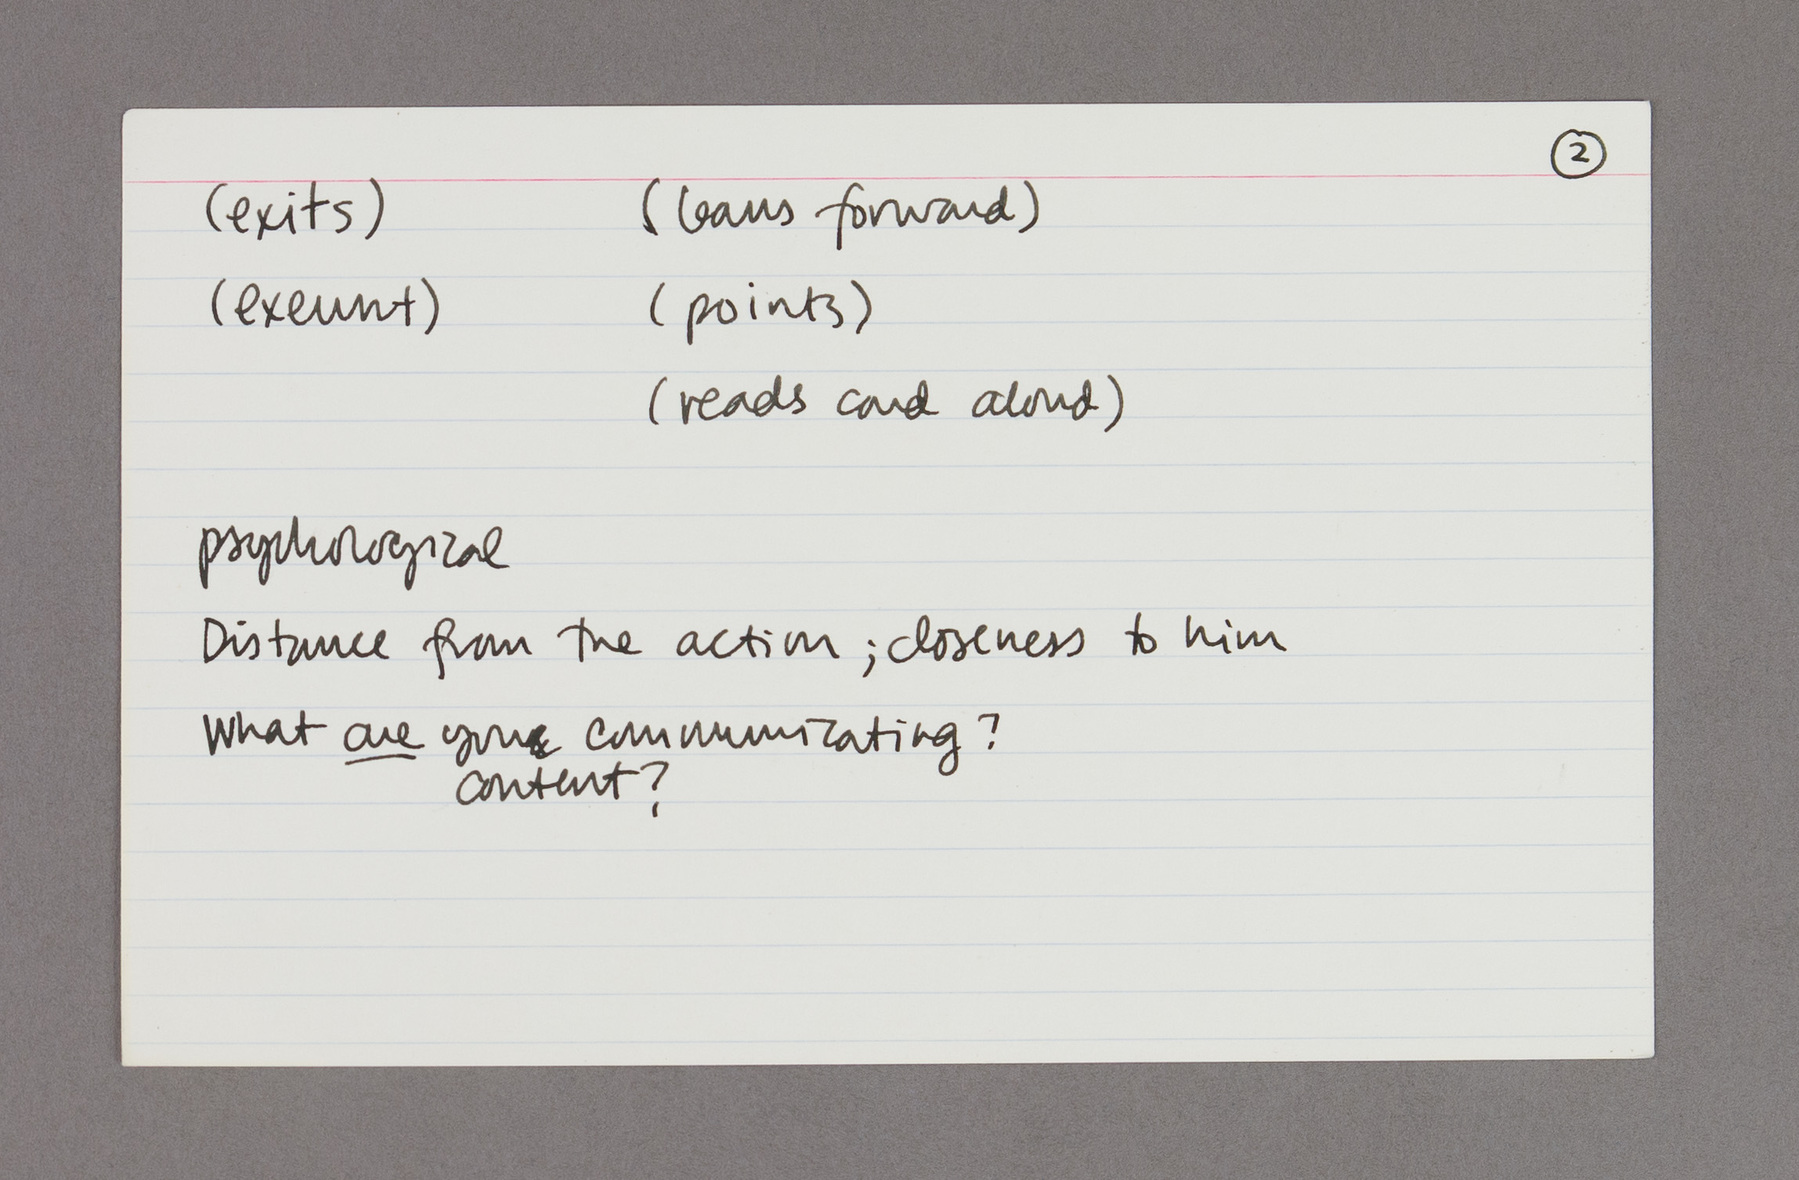 2
(exits) (leans forward)
(exeunt) (points)
(reads card aloud)
psychological
Distance from the action; closeness to him
What are you communicating?
content?